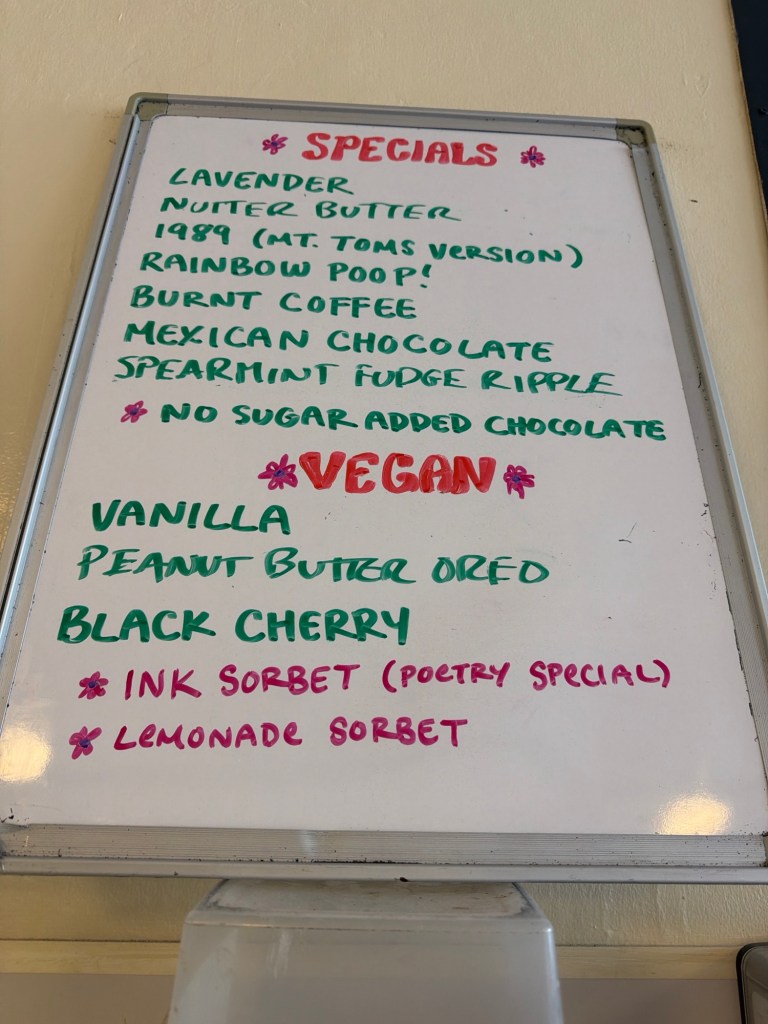 SPECIALS
LAVENDER
NUTTER BUTTER
1989 (MT. TOMS VERSION)
RAINBOW POOP!
BURNT COFFEE
MEXICAN CHOCOLATE
SPEARMINT FUDGE RIPPLE
NO SUGAR ADDED CHOCOLATE
VEGAN
VANILLA
PEANUT BUTTER OREO
BLACK CHERRY
INK SORBET (POETRY SPECIAL)
LEMONADE SORBET